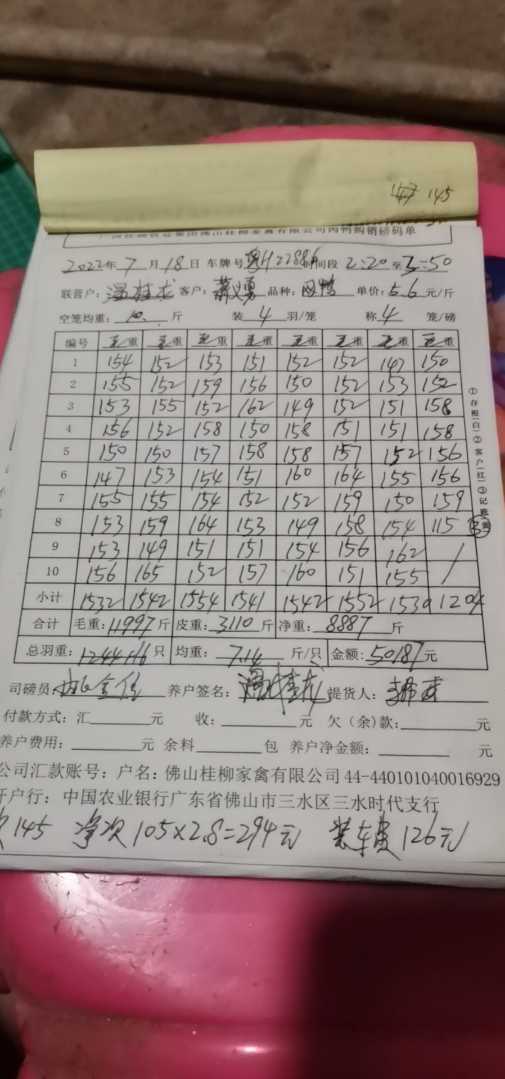 145
佛山桂柳家禽有限公司肉鸭购销磅码单
2022年7月18日 车牌号 时间段2:20至3:50
联营户: 客户: 品种:肉鸭 单价:5.6元/斤
空笼均重:10.斤 装4羽/笼 称4笼/磅
编号 毛重 毛重 毛重 毛重 毛重 毛重 毛重 毛重
1 154 152 153 151 152 152 147 150
2 155 152 159 156 150 152 153 152
3 153 155 152 162 149 152 151 158
4 156 152 158 150 158 151 151 158
5 150 150 157 158 158 157 152 156
6 147 153 154 151 160 164 155 156
7 155 155 154 152 152 159 150 159
8 153 159 164 153 149 158 154 115
9 153 149 151 151 154 156 162 /
10 156 165 152 157 160 151 155 /
小计 1532 1542 1554 1541 1542 1552 1530 1204
合计 毛重:11997斤 皮重:3110斤 净重:8887斤
总羽重:1244 只 均重:7.14斤/只 金额:50187元
司磅员: 养户签名: 提货人:
付款方式:汇 元 收: 元 欠(余)款: 元
养户费用: 元 余料 包 养户净金额: 元
公司汇款账号:户名:佛山桂柳家禽有限公司44-440101040016929
开户行:中国农业银行广东省佛山市三水区三水时代支行
145 105×2.8=294元 装车费126元
①存根(白)②客户(红)③记账